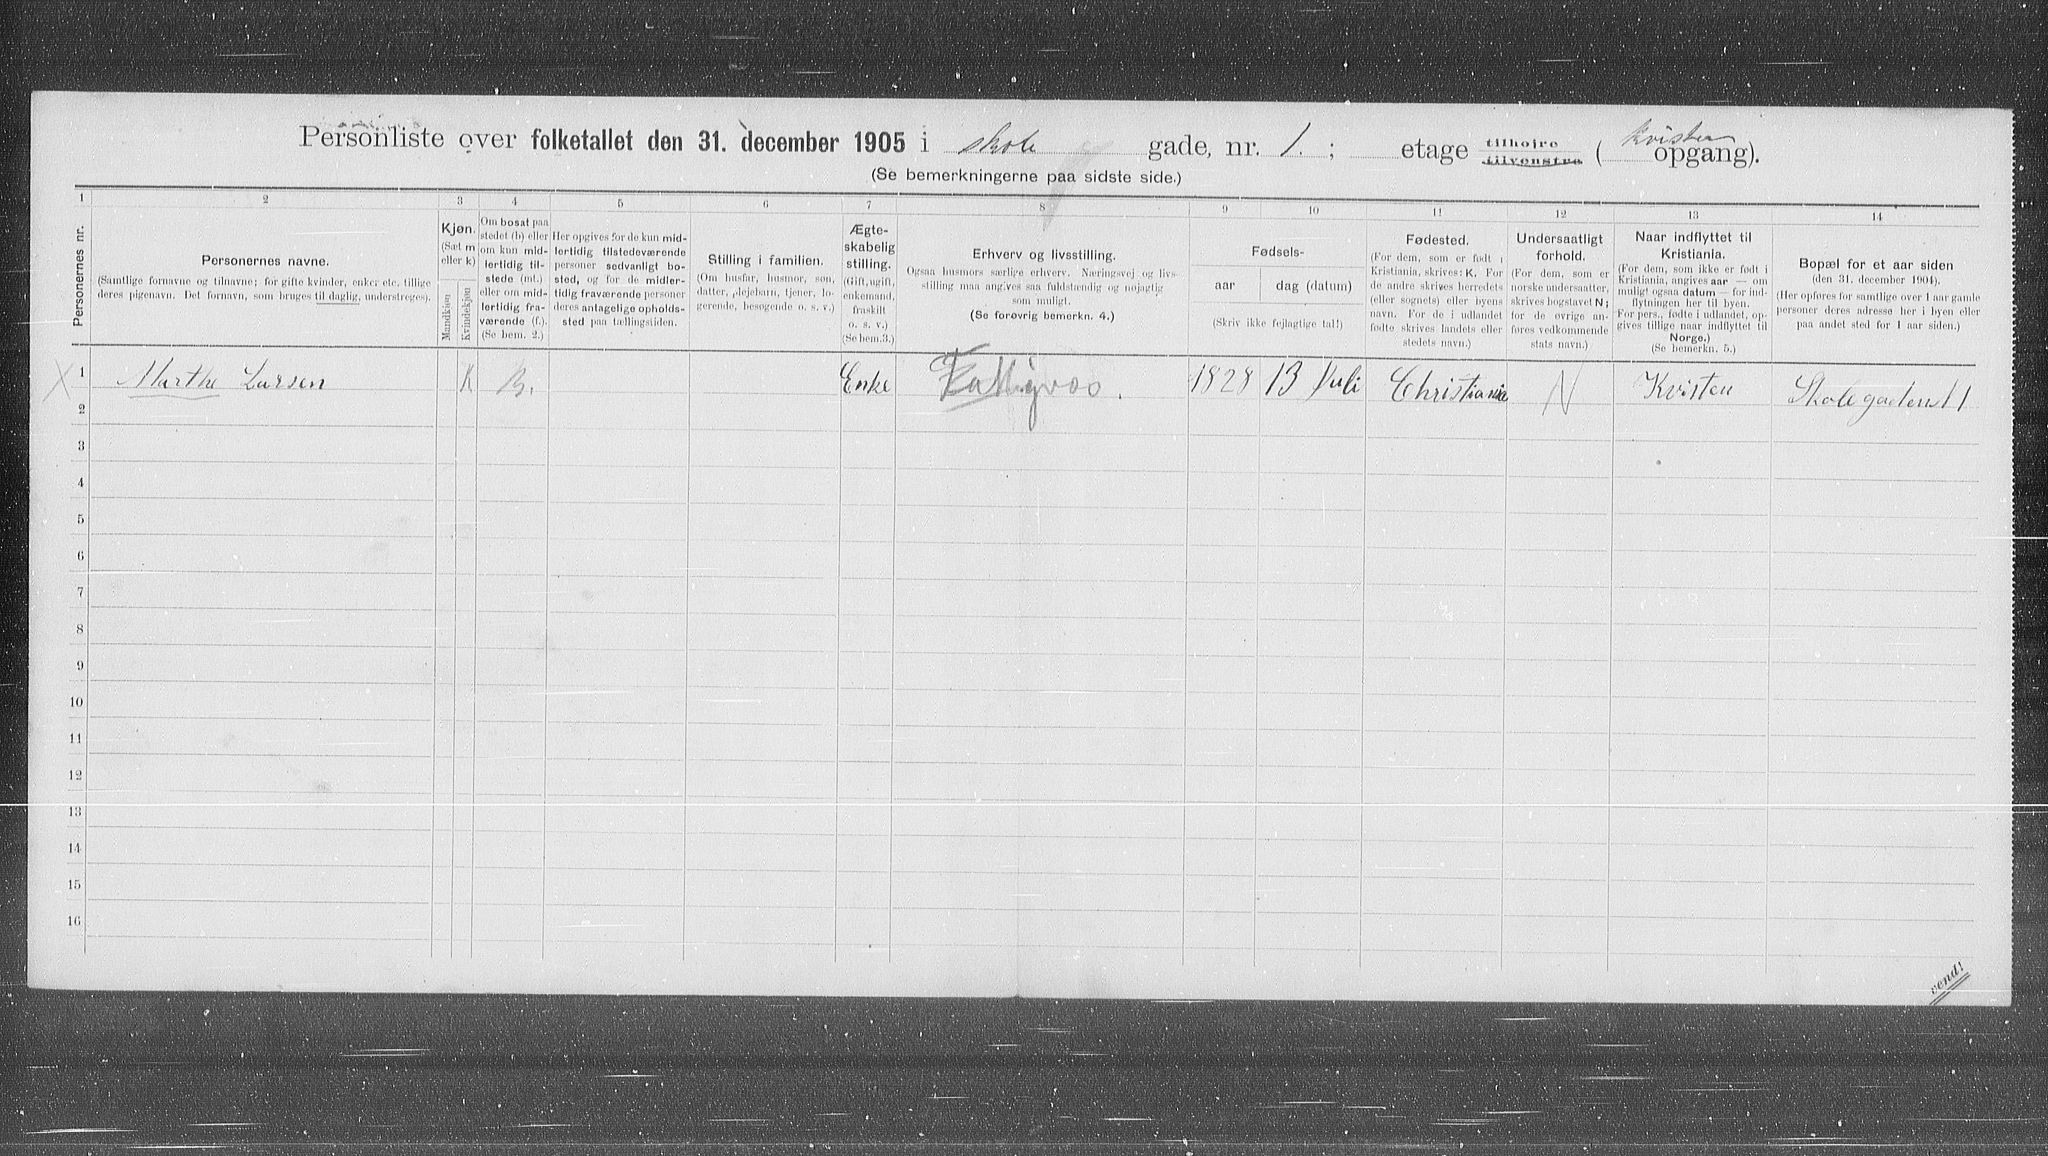 Personliste over folketallet den 31. december 1905 i skole gade, nr. 1. ; etage tilhoire tilvenstre ( Kvisten opgang).
(Se bemerkningerne paa sidste side.)
1 2 3 4 5 6 7 8 9 10 11 12 13 14
Personernes nr.
Personernes navne.
(Samtlige fornavne og tilnavne; for gifte kvinder, enker etc. tillige
deres pigenavn. Det fornavn, som bruges til daglig, understreges).
Kjøn.
(Sæt m
eller k)
Mandkjøn
Kvindekjøn
Om bosat paa
stedet (b) eller
om kun mid-
lertidig til-
stede (mt.)
eller om mid-
lertidig fra-
værende (f.)
(Se bem. 2.)
Her opgives for de kun mid-
lertidig tilstedeværende
personer sedvanligt bo-
sted, og for de midler-
tidig fraværende personer
deres antagelige opholds-
sted paa tællingstiden.
Stilling i familien.
(Om husfar, husmor, søn,
datter, plejebarn, tjener, lo-
gerende, besøgende o. s. v.)
Ægte-
skabelig
stilling.
(Gift, ugift,
enkemand,
fraskilt
o. s. v.)
(Se bem.3.)
Erhverv og livsstilling.
Ogsaa husmors særlige erhverv. Næringsvej og livs-
stilling maa angives saa fuldstændig og nøjagtig
som muligt.
(Se forøvrig bemerkn. 4.)
Fødsels-
aar
dag (datum)
(Skriv ikke fejlagtige tal!)
Fødested.
(For dem, som er født i
Kristiania, skrives: K. For
de andre skrives herredets
(eller sognets) eller byens
navn. For de i udlandet
fødte skrives landets eller
stedets navn.)
Undersaatligt
forhold.
(For dem, som er
norske undersaatter,
skrives bogstavet N;
for de øvrige an-
føres vedkommende
stats navn.)
Naar indflyttet til
Kristiania.
(For dem, som ikke er født i
Kristiania, angives aar — om
muligt ogsaa datum — for ind-
flytningen her til byen.
For pers., fødte i udlandet, op-
gives tillige naar indflyttet til
Norge.)
(Se bemerkn. 5.)
Bopæl for et aar siden
(den 31. december 1904).
(Her opføres for samtlige over 1 aar gamle
personer deres adresse her i byen eller
paa andet sted for 1 aar siden.)
X 1 Marthe Larsen K B. Enke Fattigvæs. 1828 13 Juli Christiania N Kvisten Skolegaden 1
2
3
4
5
6
7
8
9
10
11
12
13
14
15
16
vend!